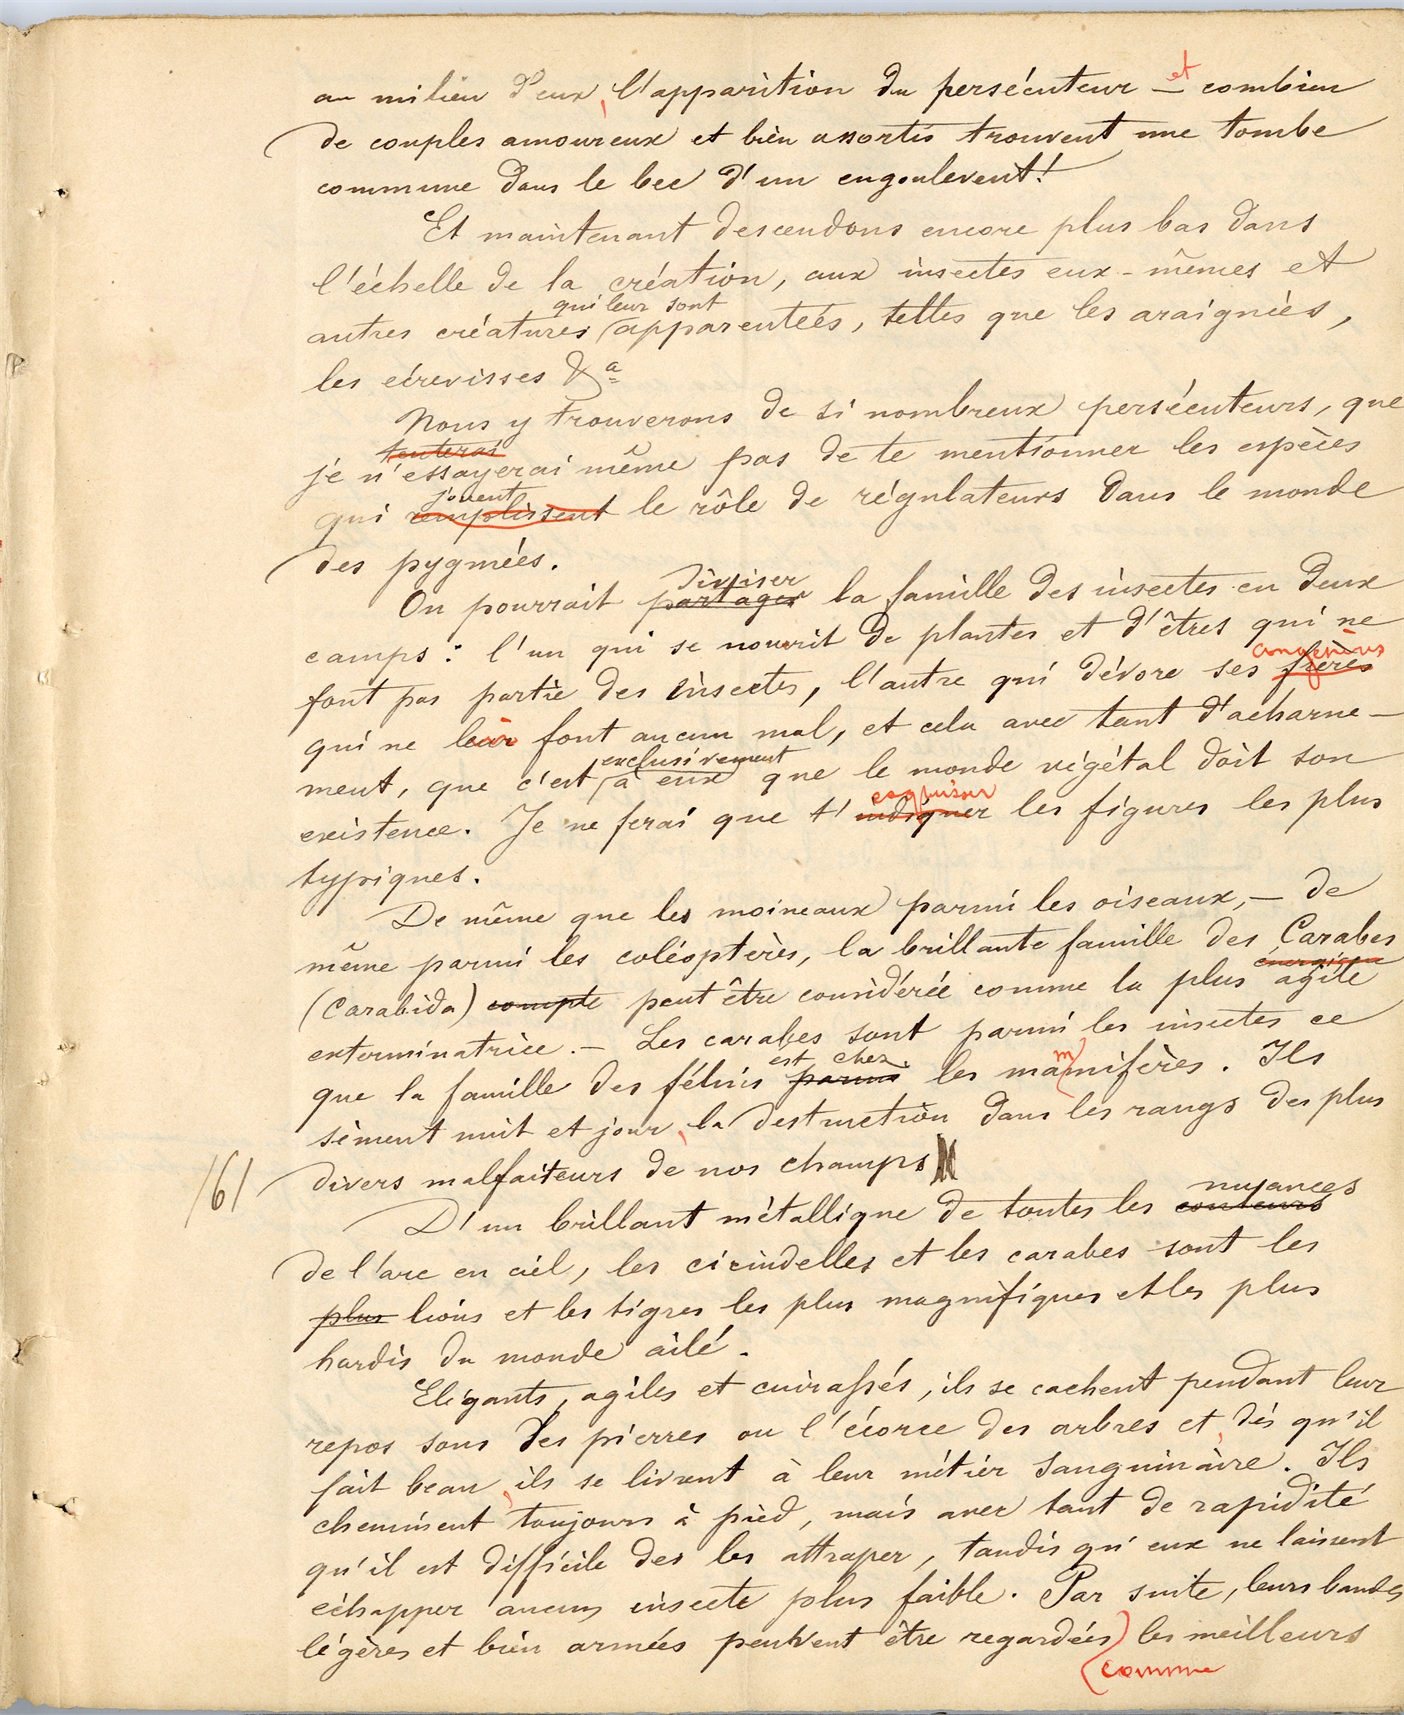 et
au milieu d'eux, l'apparition du persécuteur — combien
de couples amoureux et bien assortis trouvent une tombe
commune dans le bec d'un engoulevent!
Et maintenant descendons encore plus bas dans
l'échelle de la création, aux insectes eux-mêmes et
qui leur sont
autres créatures (apparenteés, telles que les araignées,
les écrevisses &a
Nous y trouverons de si nombreux persécuteurs, que
tenterai
je n'essayerai même pas de te mentionner les espèces
jouent
qui remplissent le rôle de régulateurs dans le monde
des pygmées.
diviser
On pourrait partager la famille des insectes en deux
camps: l'un qui se nourrit de plantes et d'êtres qui ne
congénères
font pas partie des insectes, l'autre qui dévore ses frères
qui ne leur font aucun mal, et cela avec tant d'acharne-
exclusivement
ment, que c'est (à eux) que le monde végétal doit son
esquisser
existence. Je ne ferai que t'indiquer les figures les plus
typiques.
De même que les moineaux parmi les oiseaux, — de
même parmi les coléoptères, la brillante famille des Carabes
énergique
(Carabida) compte peut être considérée comme la plus agile
exterminatrice. — Les carabes sont parmi les insectes ce
est chez
que la famille des félins parmi les mammifères. Ils
sèment nuit et jour, la destruction dans les rangs des plus
161 divers malfaiteurs de nos champs
nuances
D'un brillant métallique de toutes les couleurs
de l'arc en ciel, les cicindelles et les carabes sont les
plus lions et les tigres les plus magnifiques et les plus
hardis du monde ailé.
Elégants, agiles et cuirassés, ils se cachent pendant leur
repos sous des pierres ou l'écorce des arbres et, dès qu'il
fait beau, ils se livrent à leur métier sanguinaire. Ils
cheminent toujours à pied, mais avec tant de rapidité
qu'il est difficile des les attraper, tandis qu'eux ne laissent
échapper aucun insecte plus faible. Par suite, leurs bandes
légères et bien armées peuvent être regardées) les meilleurs
(comme